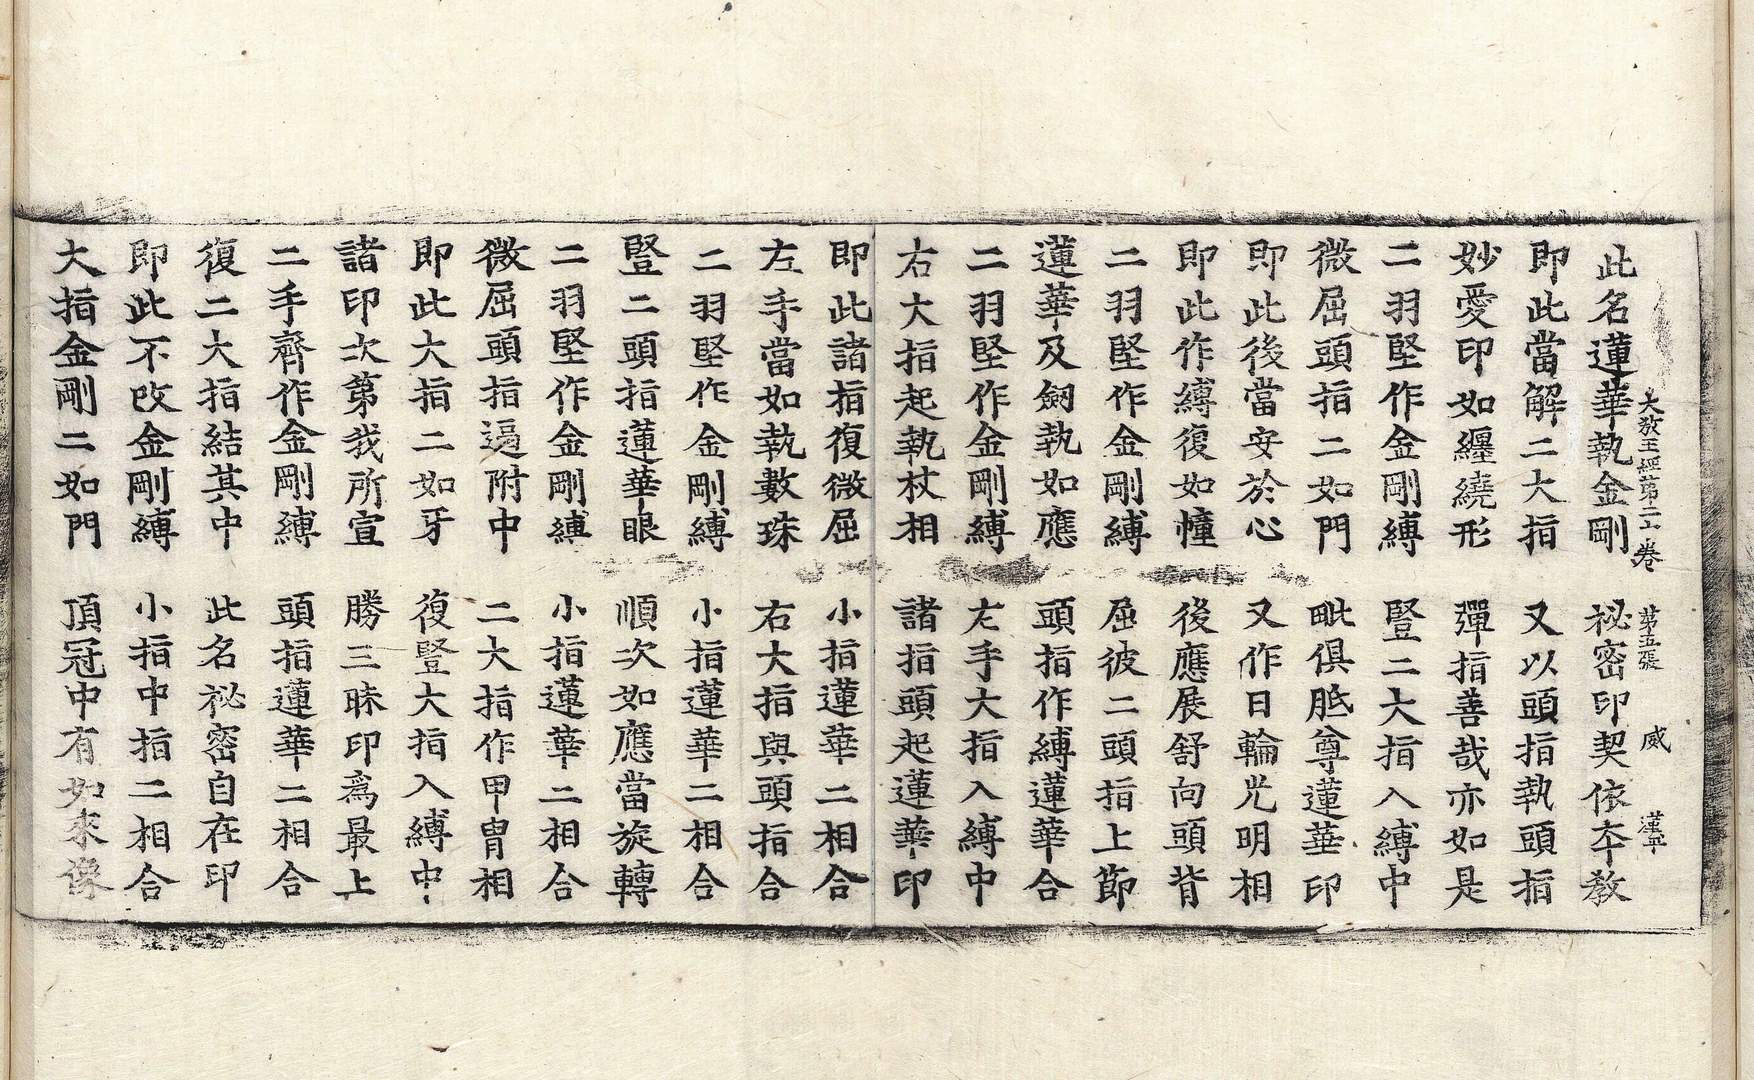 大教王經第二十卷 第五張 威 漢平
此名蓮華執金剛 祕密印契依本教
即此當解二大指 又以頭指執頭指
妙愛印如纏繞形 彈指善哉亦如是
二羽堅作金剛縛 豎二大指入縛中
微屈頭指二如門 毗俱胝尊蓮華印
即此後當安於心 又作日輪光明相
即此作縛復如幢 後應展舒向頭背
二羽堅作金剛縛 屈彼二頭指上節
蓮華及劒執如應 頭指作縛蓮華合
二羽堅作金剛縛 左手大指入縛中
右大指起執杖相 諸指頭起蓮華印
即此諸指復微屈 小指蓮華二相合
左手當如執數珠 右大指與頭指合
二羽堅作金剛縛 小指蓮華二相合
豎二頭指蓮華眼 順次如應當旋轉
二羽堅作金剛縛 小指蓮華二相合
微屈頭指逼附中 二大指作甲冑相
即此大指二如牙 復豎大指入縛中
諸印次第我所宣 勝三昧印爲最上
二手齊作金剛縛 頭指蓮華二相合
復二大指結其中 此名祕密自在印
即此不改金剛縛 小指中指二相合
大指金剛二如門 頂冠中有如來像